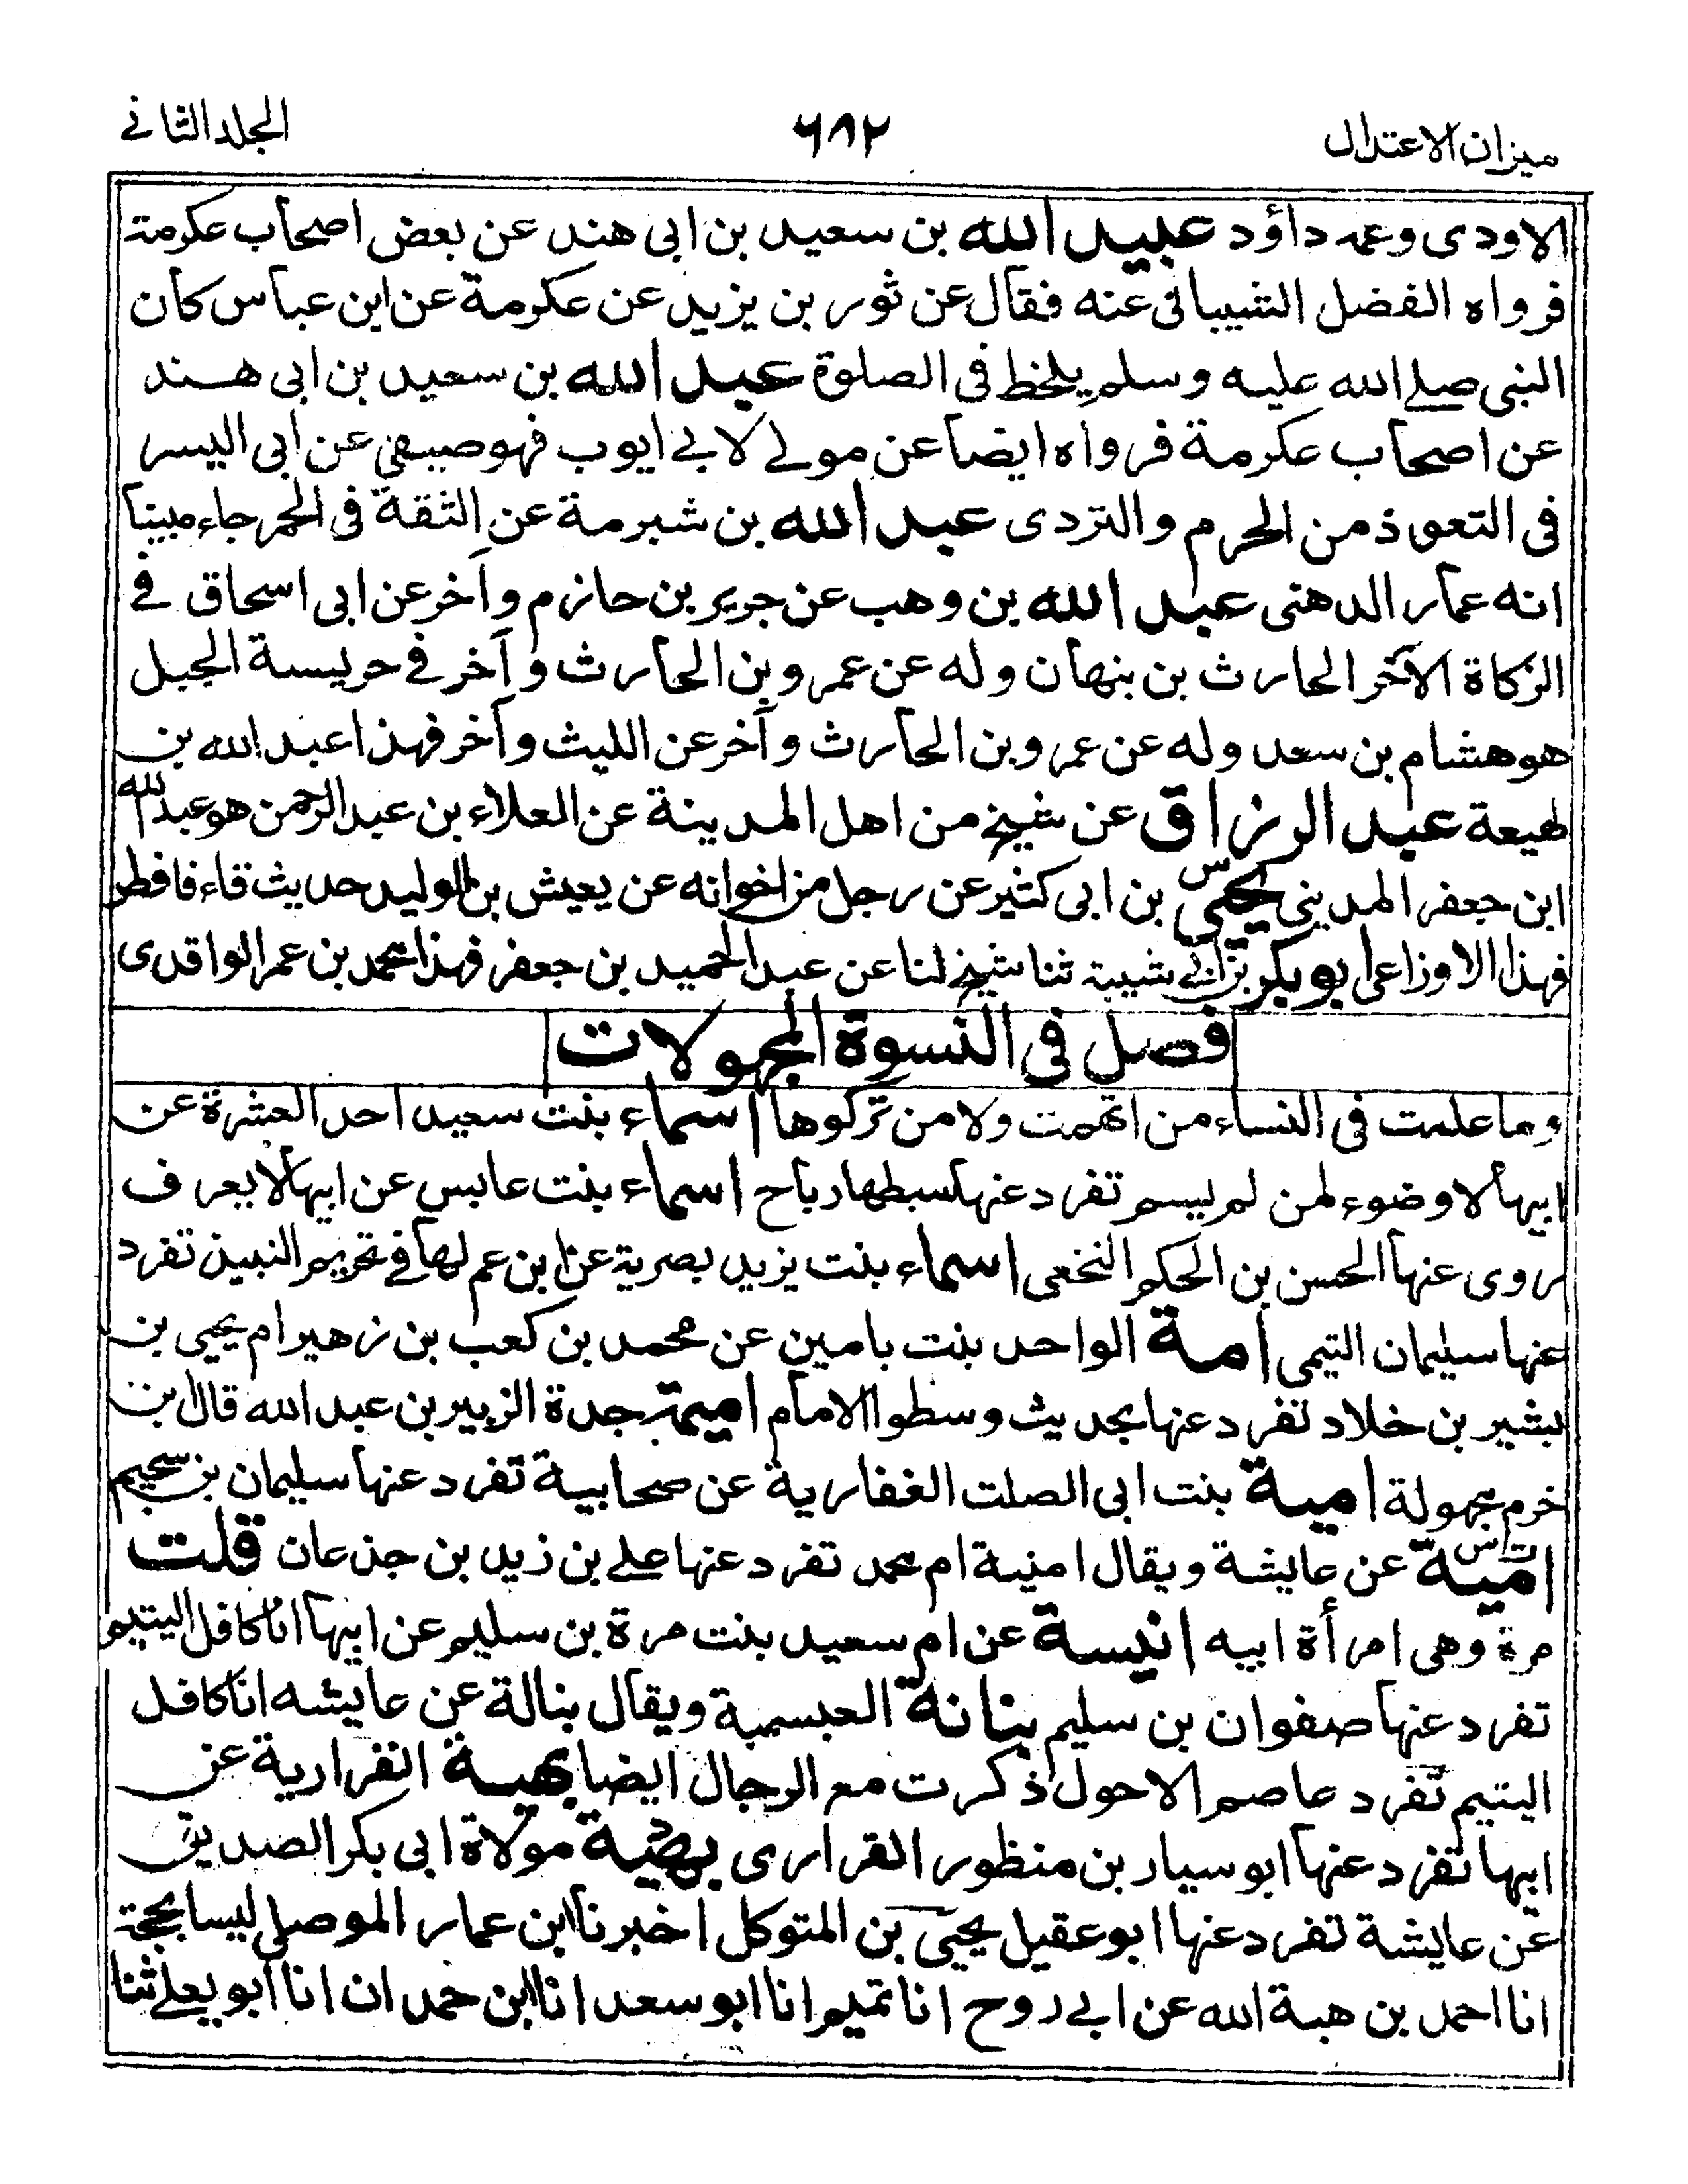 ميزان الاعتدال ٦٨٢ المجلد الثاني
الاودى وعمه داؤد عبيد الله بن سعيد بن ابى هند عن بعض اصحاب عكرمة
فرواه الفضل الشيبانى عنه فقال عن ثور بن يزيد عن عكرمة عن ابن عباس كان
النبى صلے الله عليه وسلم يلحظ فى الصلوة عبد الله بن سعيد بن ابى هند
عن اصحاب عكرمة فرواه ايضا عن مولے لابے ايوب فهو صيفي عن ابى اليسر
فى التعوذ من الحرم والتردى عبد الله بن شبرمة عن الثقة فى الخمر جاء مبينا
انه عمار الدهنى عبد الله بن وهب عن جرير بن حازم وآخر عن ابى اسحاق فے
الزكاة الآخر الحارث بن بنهان وله عن عمرو بن الحارث وآخر فے حريسة الجبل
هو هشام بن سعد وله عن عمرو بن الحارث وآخر عن الليث وآخر فهذا عبد الله بن
لهيعة عبد الرزاق عن شيخ من اهل المدينة عن العلاء بن عبد الرحمن هو عبد الله
ابن جعفر المدينى يحيى س بن ابى كثير عن رجل من اخوانه عن يعيش بن الوليد حديث قاء فافطر
فهذا الاوزاعى ابو بكر بن ابے شيبة ثنا شيخ لنا عن عبد الحميد بن جعفر فهذا محمد بن عمر الواقدى
فصل فى النسوة المجهولات
وما علمت فى النساء من اتهمت ولا من تركوها اسماء بنت سعيد احد العشرة عن
ابيها لا وضوء لمن لم يسم تفرد عنها سبطها رباح اسماء بنت عابس عن ابيها لا يعرف
روى عنها الحسن بن الحكم النخعى اسماء بنت يزيد بصرية عن ابن عم لها فے تحريم النبيذ تفرد
عنها سليمان التيمى امة الواحد بنت يامين عن محمد بن كعب بن زهير ام يحيى بن
بشير بن خلاد تفرد عنها بحديث وسطوا الامام اميمة جدة الزبير بن عبد الله قال ابن
خرم مجهولة امية بنت ابى الصلت الغفارية عن صحابية تفرد عنها سليمان بن سحيم
امية ت س عن عايشة ويقال امنية ام محمد تفرد عنها علے بن زيد بن جذعان قلت
مرة وهى امرأة ابيه انيسة عن ام سعيد بنت مرة بن سليم عن ابيها انا كافل اليتيم
تفرد عنها صفوان بن سليم بنانة العبسمية ويقال بنالة عن عايشه انا كافل
اليتيم تفرد عاصم الاحول ذكرت مع الرجال ايضا بهية الفرارية عن
ابيها تفرد عنها ابو سيار بن منظور القرارى بهية د مولاة ابى بكر الصديق
عن عايشة تفرد عنها ابو عقيل يحيى بن المتوكل اخبرنا ابن عمار الموصلى ليسا بحجة
انا احمد بن هبة الله عن ابے روح انا تميم انا ابو سعد انا ابن حمدان انا ابو يعلے ثنا